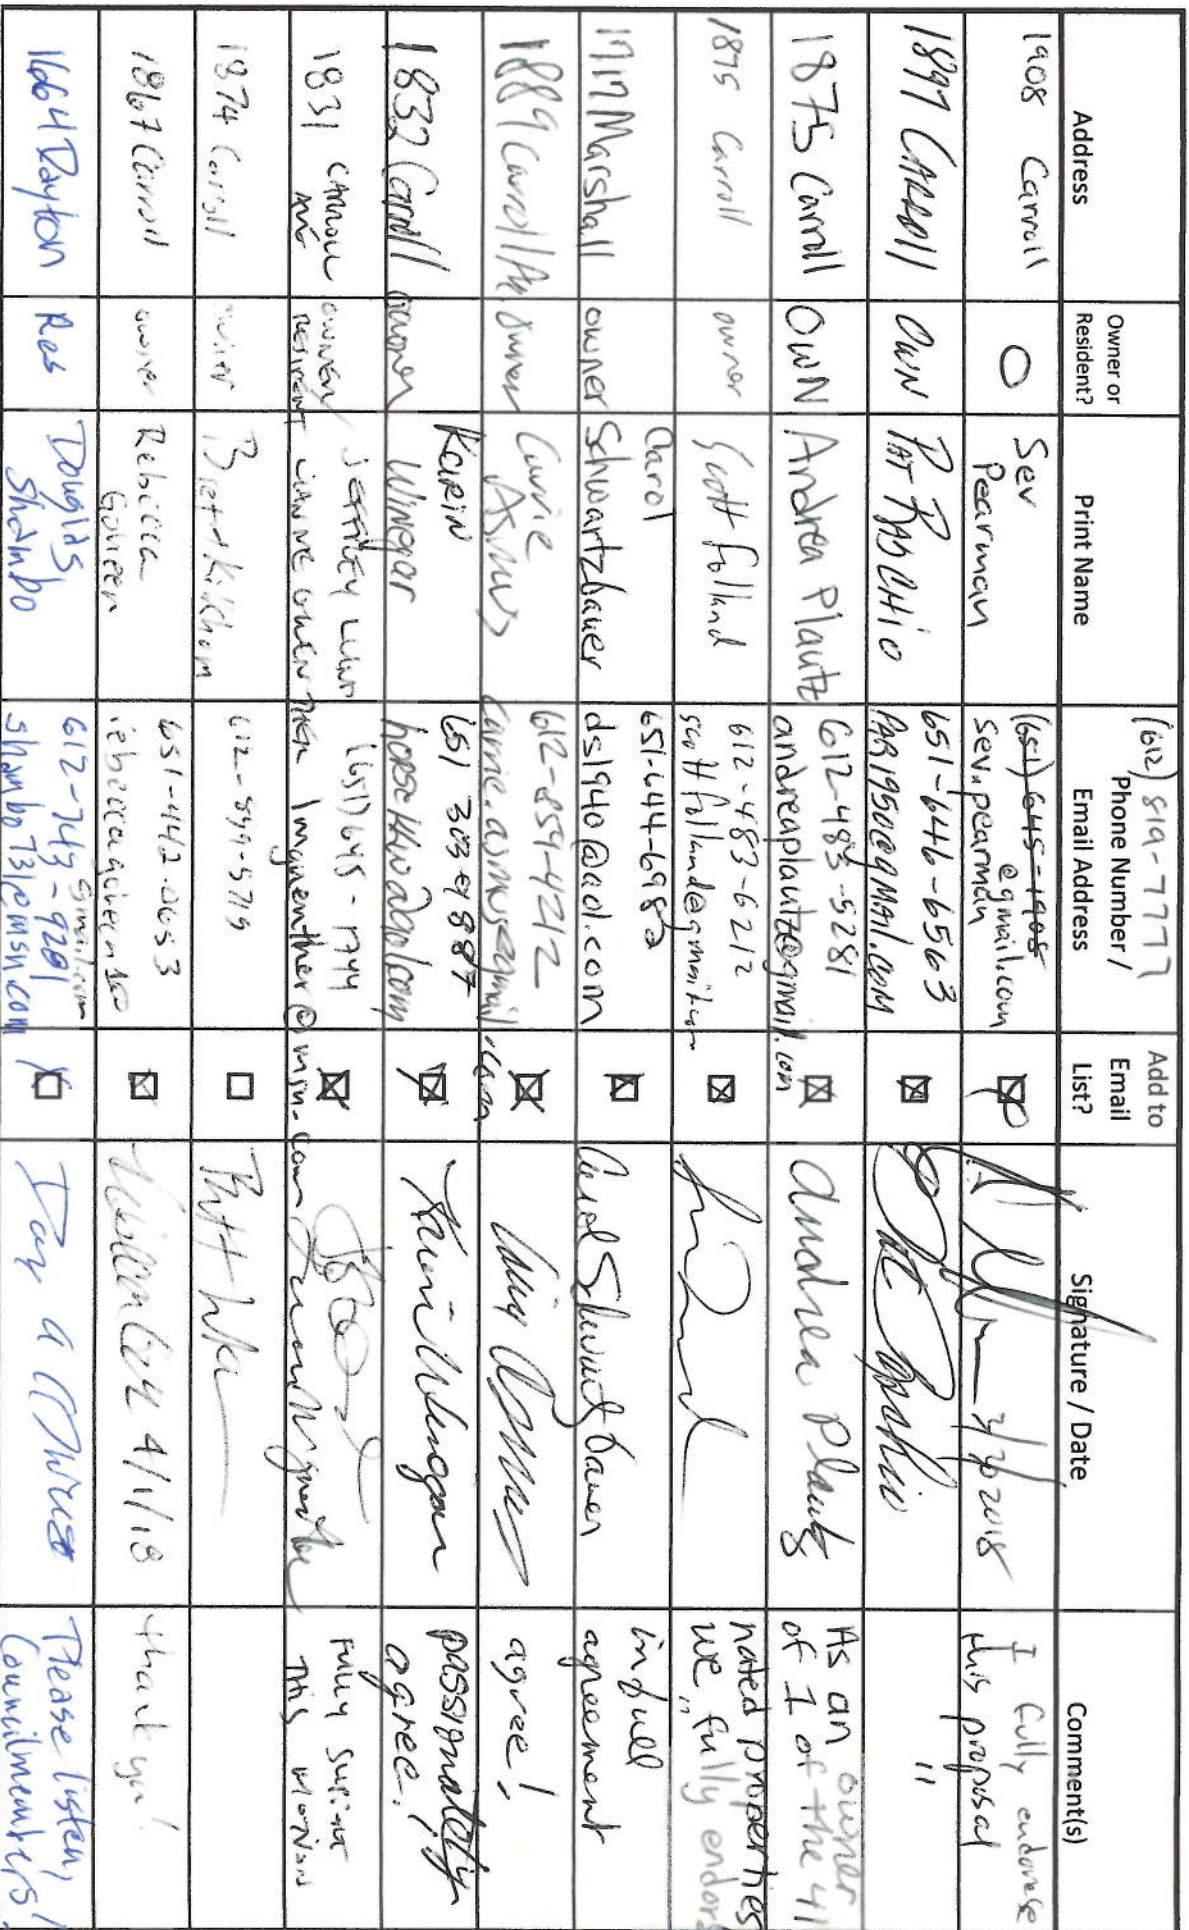 Address
Owner or
Resident?
Print Name
(612) 819-7777
Phone Number /
Email Address
Add to
Email
List?
Signature / Date
Comment(s)
1908 Carroll
O
Sev
Pearman
(651) 645-1908
sev.pearman
@gmail.com
3/30/2018
I fully endorse
this proposal
1897 CARROLL
OWN
PAT RADCHIO
651-646-6563
PAR1950@GMAIL.COM
"
1875 Carroll
OWN
Andrea Plautz
612-483-5281
andreaplautz@gmail.com
Andrea Plautz
As an owner
of 1 of the 41
nated properties
we, fully endors
1875 Carroll
owner
Scott Folland
612-483-6212
scottfolland@gmail.com
1717 Marshall
owner
Carol
Schwartzbauer
651-644-698
ds1940@aol.com
Carol Schwartzbauer
in full
agreement
1889 Carroll Av
owner
Carrie
Asmus
612-859-4212
carrie.asmus@gmail.com
agree!
1832 Carroll
owner
KARIN
Winegar
651 303 9887
horsekw@aol.com
Karin Winegar
passionately
agree!
1831 CARROLL
AVE
OWNER/
RESIDENT
JEFFREY
(651) 645-1744
lmguenther@msn.com
FULLY SUPPORT
THIS MOTION
1874 Carroll
owner
Brett Kilchom
612-599-5719
1867 Carroll
owner
Rebecca
Goheen
651-442-0053
rebeccagoheen
gmail.com
4/1/18
thank you!
1664 Dayton
Res
Douglas
Shambo
612-743-9201
shambo73@msn.com
Please listen,
Councilmembers!